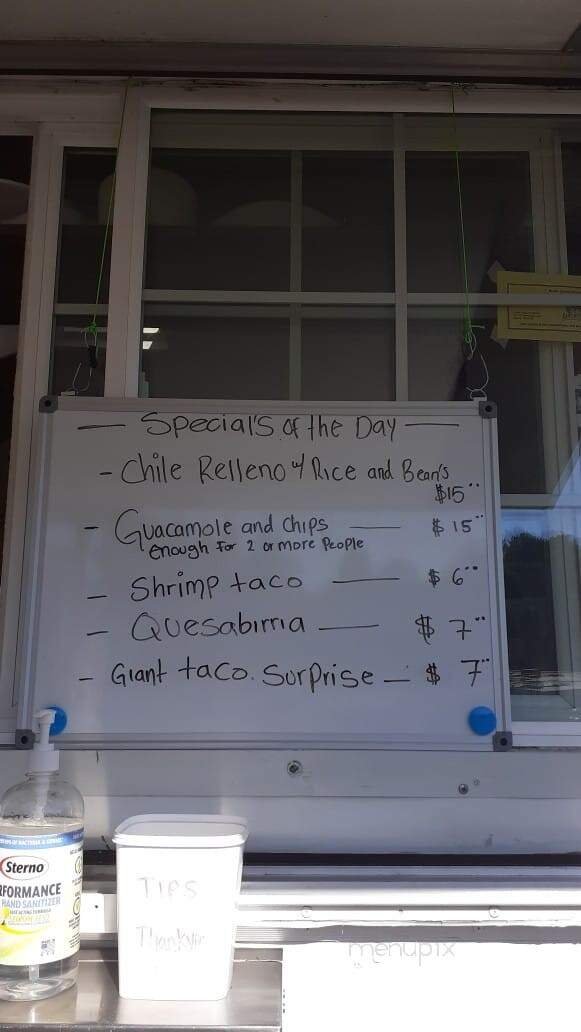 — Special's of the Day —
- Chile Relleno w/ Rice and Bean's
$15"
- Guacamole and chips — $15"
enough for 2 or more People
- Shrimp taco — $6"
- Quesabirria — $7"
- Giant taco. Surprise — $7"
Sterno
RFORMANCE
HAND SANITIZER
TIPS
Thankyou
menupix